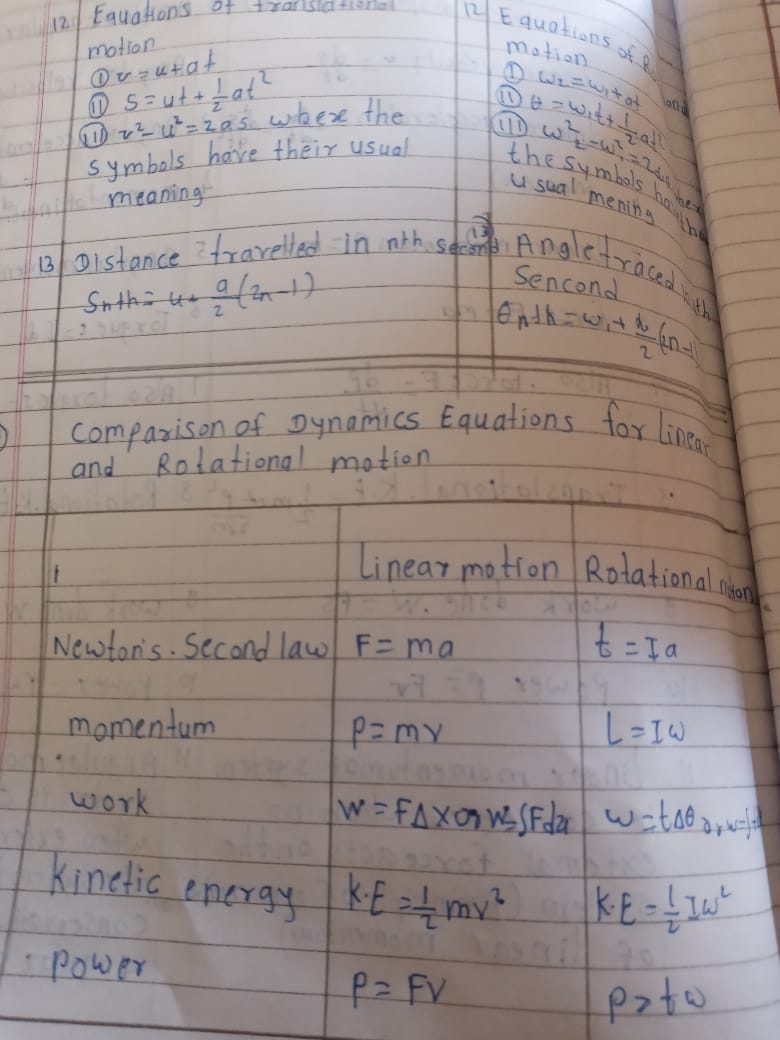 12. Equations of translational
motion
① v = u+at
② S = ut + 1/2 at²
③ v² - u² = 2as where the
symbols have their usual
meaning
12 Equations of
motion
① ω₂ = ω₁+αt
② θ = ω₁t + 1/2 αt²
③ ω₂² - ω₁² = 2αθ
the symbols
usual mening
13 Distance travelled in nth second
Snth = u + a/2 (2n-1)
13 Angle traced in nth
Sencond
θnth = ω₁ + α/2 (2n-1)
Comparison of Dynamics Equations for linear
and Rotational motion
Linear motion Rotational motion
Newton's. Second law F = ma t = Ia
momentum P = mv L = Iω
work W = FΔX or W=∫Fdx ω = tΔθ or
Kinetic energy K.E = 1/2 mv² K.E = 1/2 Iω²
power P = FV P = tω